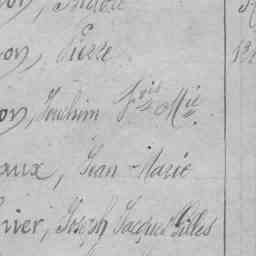 on, Pierre
on, Joachim Fois Mie
aux, Jean-Marie
nier, Joseph Jacques Gilles